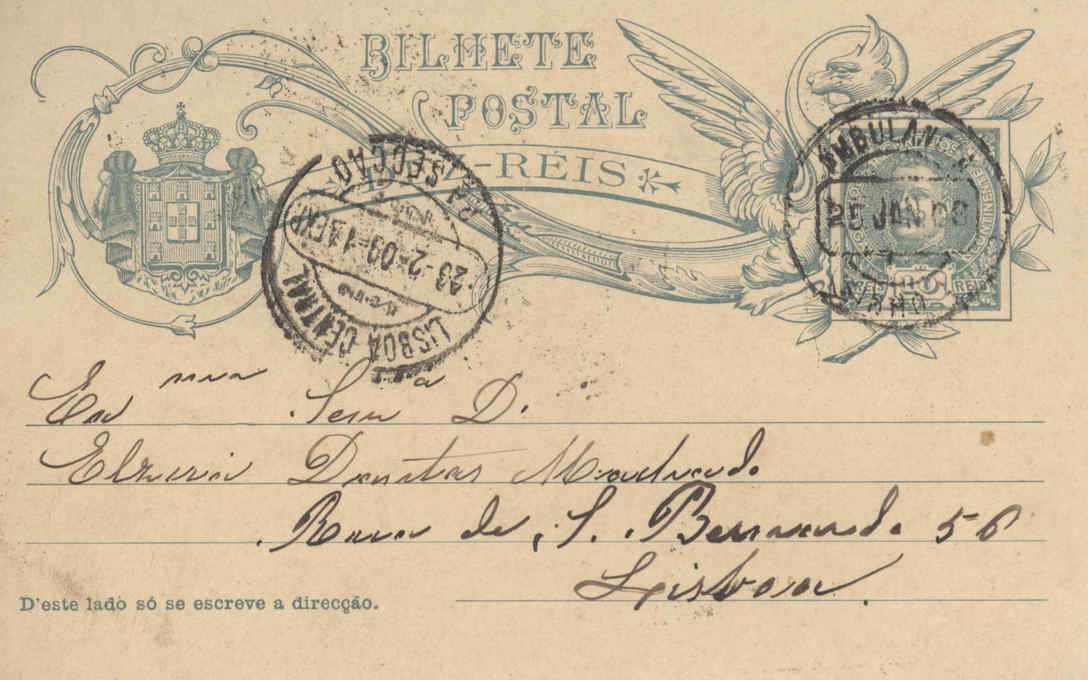 BILHETE
POSTAL
-RÉIS
LISBOA CENTRAL
SECÇÃO
23-2-09=1
AMBULANCIA
25 JAN 0
MINHO
REIS
Exma Senra D.
Elzira Dantas Machado
Rua de S. Bernardo 56
Lisboa.
D'este lado só se escreve a direcção.